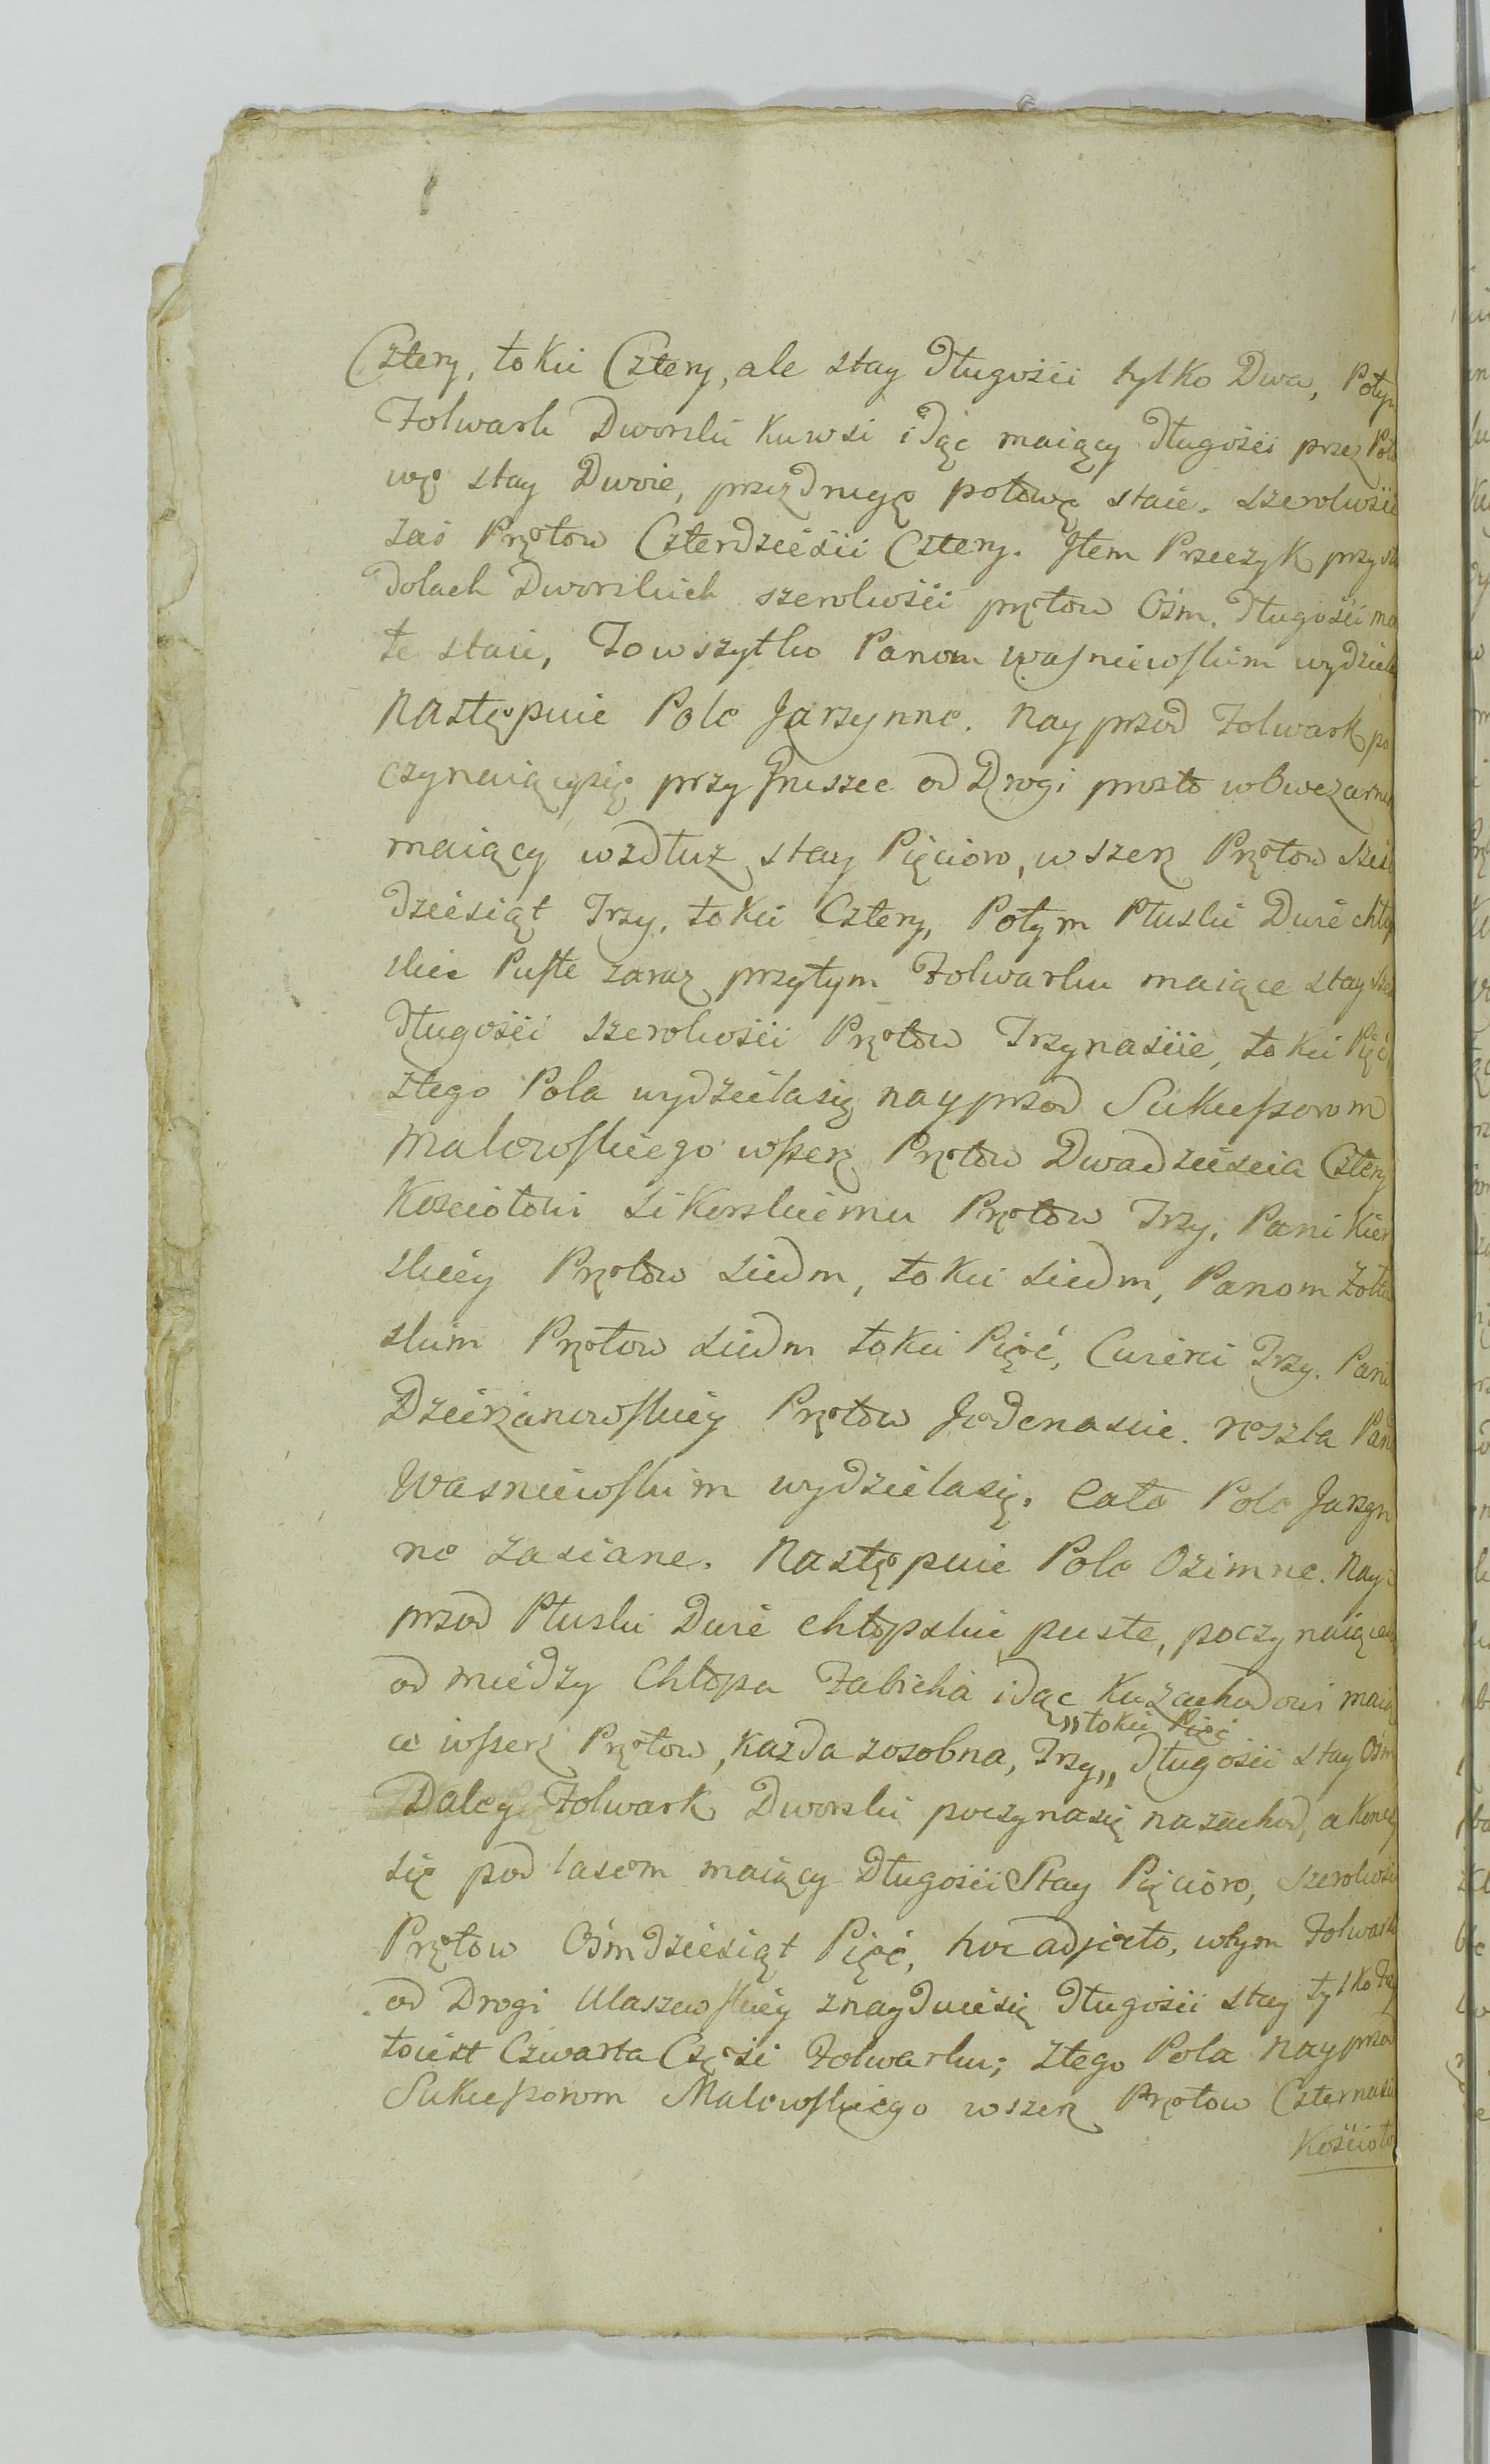 Cztery, łokci Cztery, ale stay długości tylko Dwa, Potym
Folwark Dworski ku wsi idąc maiący długości przez Poło
wę stay Dwoie, przez drugę połowę staie. szerokości
zaś Prętow Czterdziesci Cztery. Jtem Przeczyk przy
dolach Dworskich szerokości prętow Ośm, długości ma
łe staie, To wszytko Panom Wasniewskim wydziela
Następuie Pole Jarzynne. Nayprzod Folwark po
czynaiący się przy Gruszce od Drogi prosto w Owczarnią
maiący wzdłuz stay Pięcioro, w szerz Prętow sześć
dziesiąt Trzy, łokci Cztery, Potym Płuski Dwie chłop
skie Puste zaraz przy tym Folwarku maiące stay
długości szerokości Prętow Trzynaście, łokci Pięć
z tego Pola wydziela się nayprzod Sukcessorom
Malewskiego wszerz Prętow Dwadziescia Cztery
Kościołowi Sikorskiemu Prętow Trzy, Pani Kier
skiey Prętow siedm, łokci siedm, Panom Zołto
skim Prętow siedm łokci Pięć, Cwierci Trzy. Pani
Dzierżanowskiey Prętow Jedenascie. reszta Pano
Wasniewskim wydziela się. Całe Pole Jarzyn
ne zasiane. Następuie Pole Ozimne. Nay
przod Płuski Dwie chłopskie puste, poczynaiące
od miedzy Chłopa Zabicha idąc ku Zachodowi maią
ce wszerz Prętow, kazda zosobna, Trzy „łokci Pięć„ długości stay Ośm
Daley Folwark Dworski poczyna się na zachod, a koncz
się pod lasem maiący długości Stay Pięcioro, szerokości
Prętow Ośmdziesiąt Pięć, hoc adjecto, w tym Folwark
od Drogi Ulaszewskiey znayduie się długości stay tylko
to iest Czwarta Część Folwarku; z tego Pola Nayprzod
Sukcessorom Malewskiego wszerz Prętow Czternaści
Kościoło